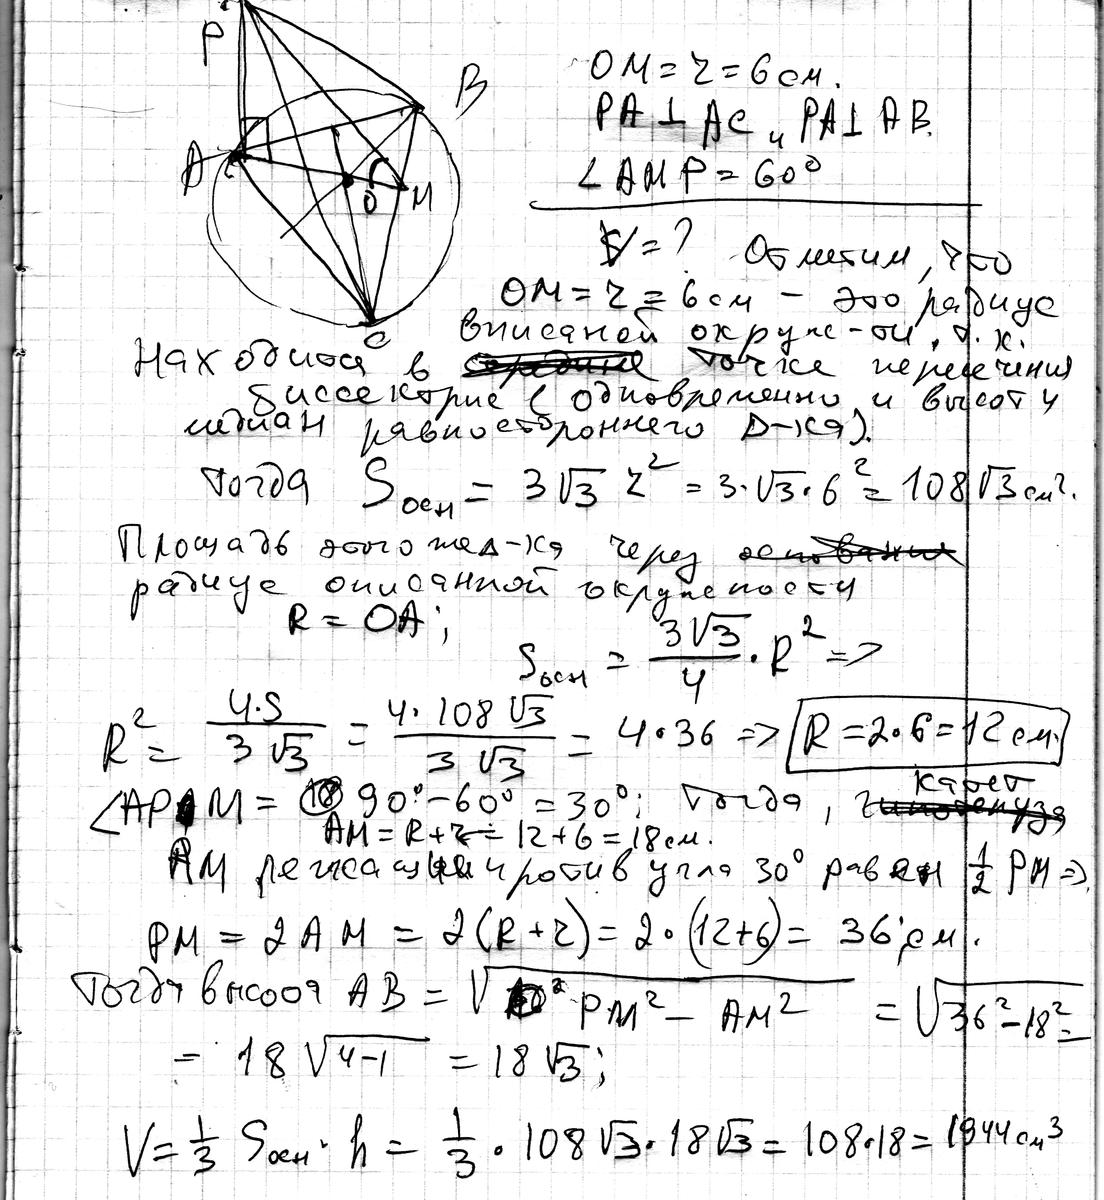 P
B
A
O
M
C
OM = r = 6 см.
PA ⊥ AC и PA ⊥ AB.
∠AMP = 60°
V = ? Отметим, что
OM = r = 6 см – это радиус
вписаной окруж-ти, т.к.
Находится в точке пересечения
биссектрис (одновременно и высот и
медиан равностороннего Δ-ка).
Тогда Sосн = 3√3 r² = 3·√3·6² = 108√3 см².
Площадь этого же Δ-ка через
радиус описанной окружности
R = OA;
Sосн = 3√3/4 · R² =>
R² = 4·S/3√3 = 4·108√3/3√3 = 4·36 => R = 2·6 = 12 см.
∠APM = 90° – 60° = 30°; Тогда, катет
AM = R + r = 12 + 6 = 18 см.
AM лежащий против угла 30° равен 1/2 PM =>
PM = 2AM = 2(R + r) = 2·(12+6) = 36 см.
Тогда высота AB = √PM² – AM² = √36² – 18² =
= 18√4–1 = 18√3;
V = 1/3 Sосн · h = 1/3 · 108√3 · 18√3 = 108·18 = 1944 см³